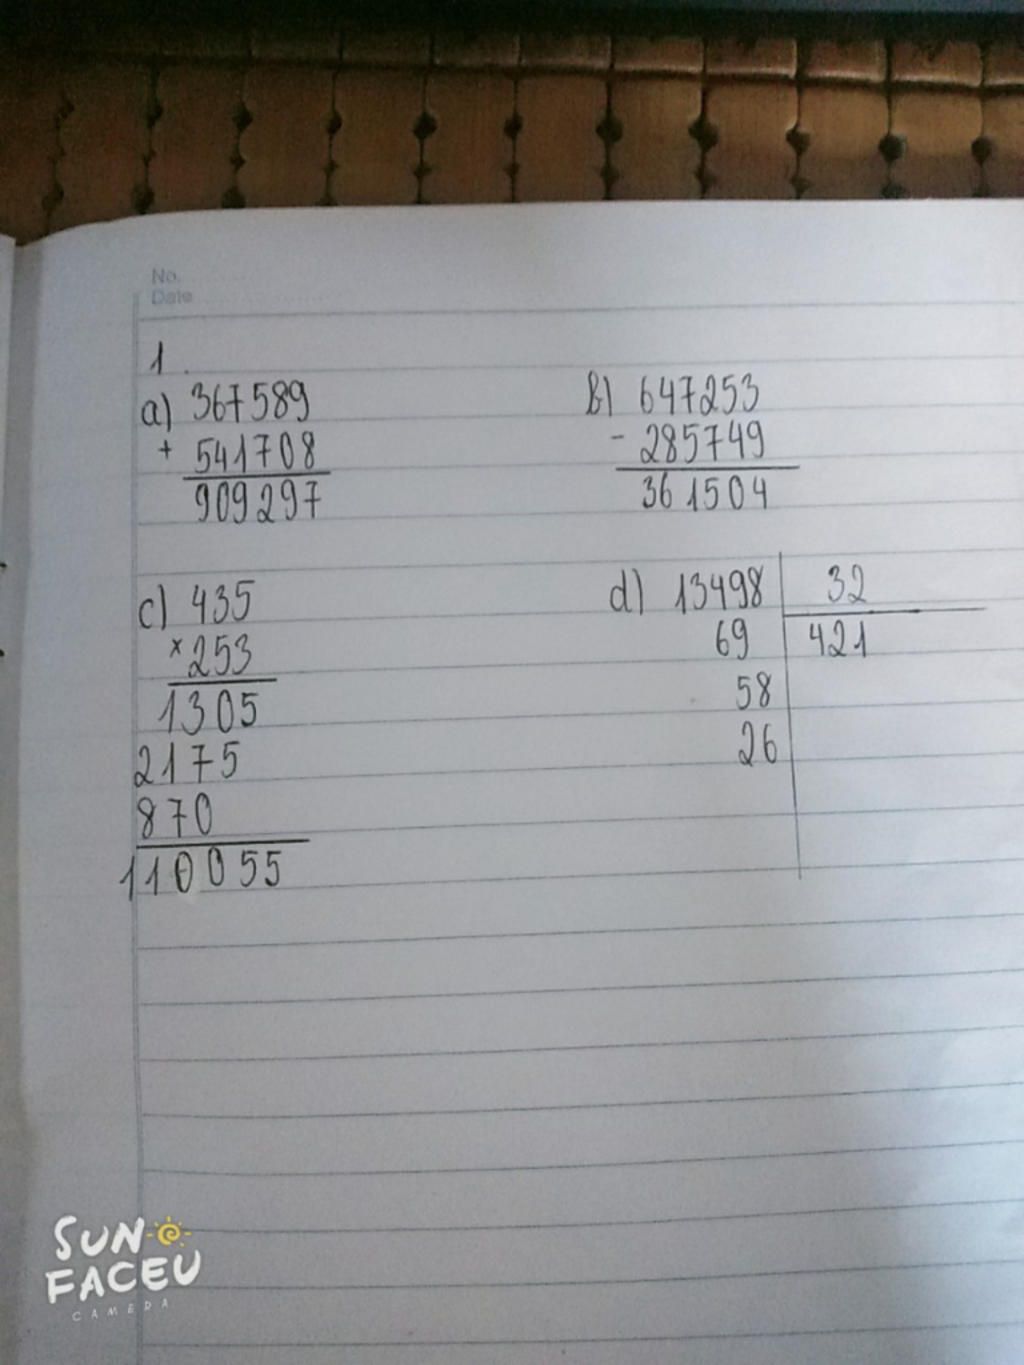 No.
Date
1.
a) 367589
+ 541708
909297
b) 647253
- 285749
361504
c) 435
× 253
1305
2175
870
110055
d) 13498 32
69 421
58
26
SUN
FACEU
CAMERA